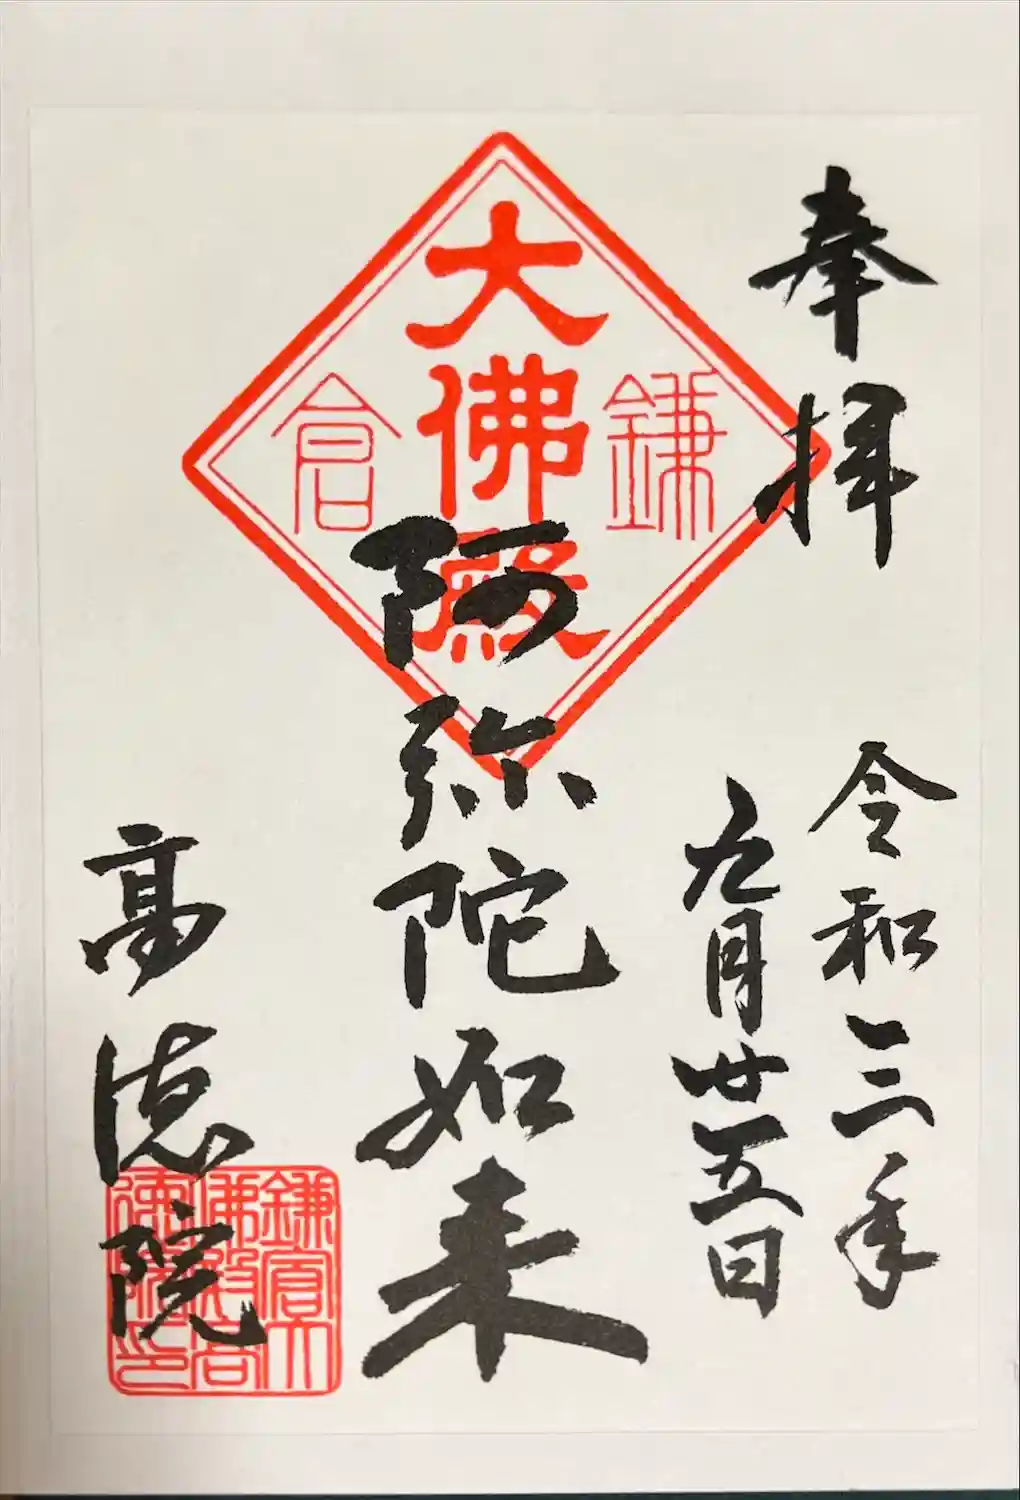 奉拝
令和三年
九月廿五日
鎌倉
大佛殿
阿弥陀如来
高徳院
鎌倉大
佛殿高
徳院印